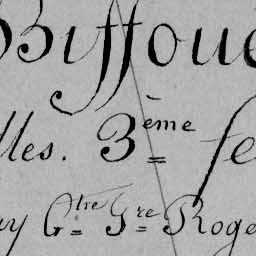 Biffoué
lles. 3ème fe
ay Gtre Gre Roge